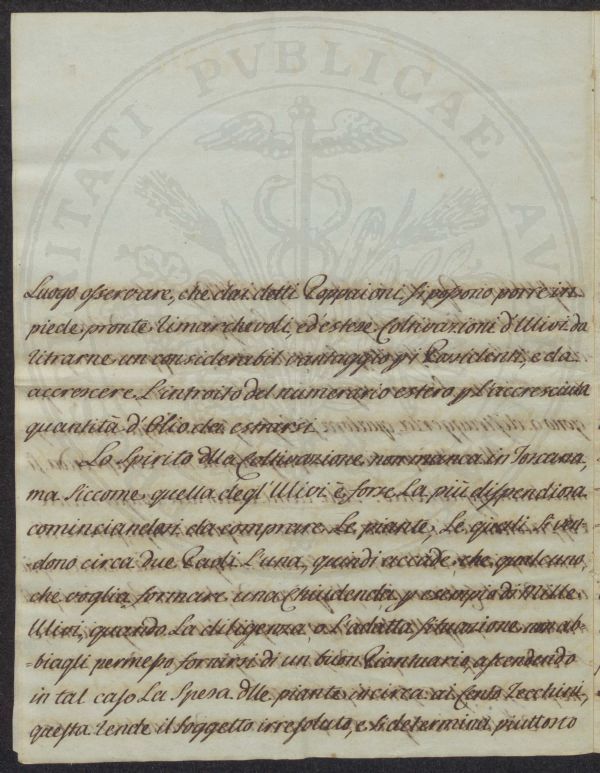 Luogo osservare, che dai detti Poppaioni, si possono porre in
piede, pronte rimarchevoli, ed estese Coltivazioni d'Ulivi da
ritrarne un considerabil vantaggio p i Possidenti, e da
accrescere L'introito del numerario estero p L'accresciuta
quantità d'Olio da estrarsi.
Lo Spirito dlla Coltivazione non manca in Toscana,
ma siccome quella degl'Ulivi è forse La più dispendiosa
cominciandosi da comprare Le piante, Le quali si ven-
dono circa due Paoli L'una, quindi accade, che qualcuno,
che voglia formare una Chiudenda, p esempio di Mille
Ulivi, quando La diligenza o L'adatta situazione non ab-
=biagli permesso fornirsi di un buon Piantuario, ascendendo
in tal caso La Spesa dlle piante incirca ai Cento Zecchini,
questa rende il soggetto irresoluto, e si determina piuttosto
PVBLICAE